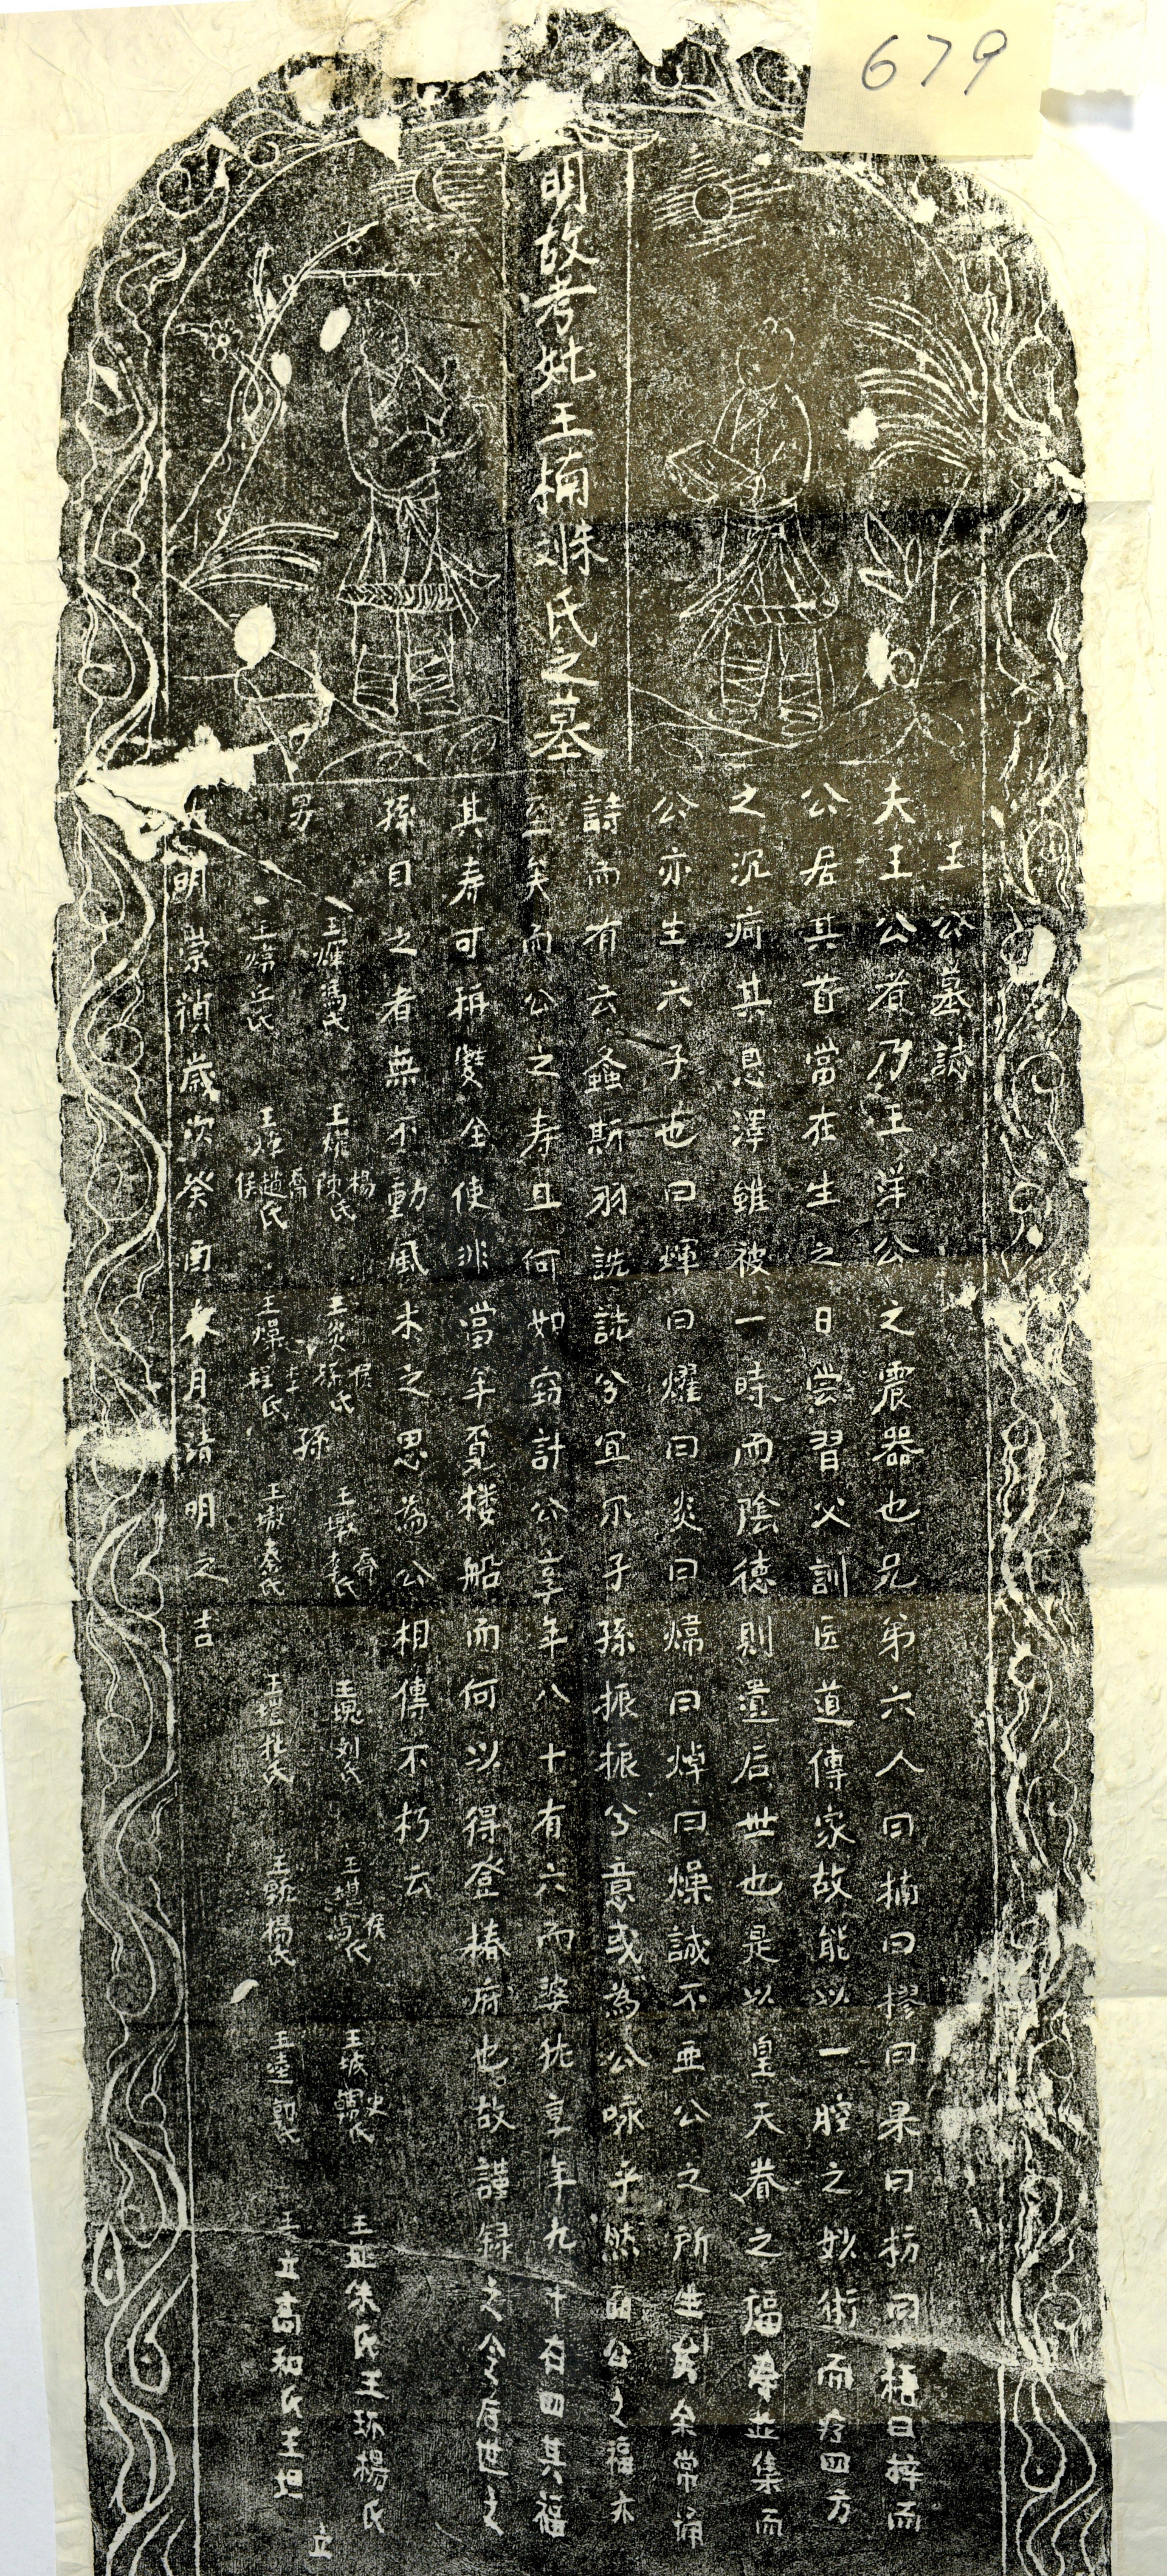 679
明故考妣王楠姝氏之墓
王公墓誌
夫王公者乃王洋公之震器也兄弟六人曰楠曰樛曰果曰枋曰梧曰梓而
公居其首當在生之日嘗習父訓医道傳家故能以一腔之妙術而疗四方
之沉疴其恩澤雖被一時而陰德則遺后世也是以皇天眷之福寿並集而
公亦生六子也曰煇曰燿曰炎曰煒曰焯曰燥誠不亚公之所生矣余常诵
詩而有云螽斯羽詵詵兮宜尔子孫振振兮意或為公咏乎然而公之福亦
至矣而公之寿且何如窃計公享年八十有六而婆姚享年九十有四其福
其寿可稱雙全使非當年覓楼船而何以得登椿府也故謹録之令后世之
孫目之者無不動風木之思為公相傳不朽云
男
王煇馮氏 王燦楊陳氏 王炎侯孫氏 王墩喬李氏 王塊刘氏 王堪侯馬氏 王城史氏 王址朱氏王环楊氏
王氏 王趙喬侯氏 王李程氏 孫 王墩秦氏 王杜氏 王楊氏 王郭氏 王立高和氏王坦
立
明崇禎歳次癸酉春月清明之吉